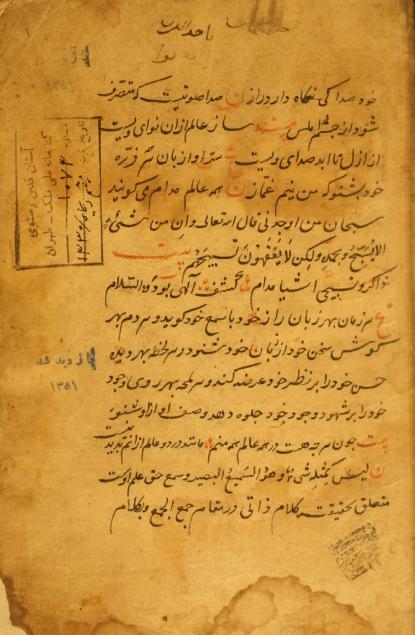 خود صدا کی نگاه دارد راز صدا صوتیست که متصرف
شود از چشم ملس ساز عالم ازان نوای ویست
از ازل تا ابد صدای ویست سر او از زبان هر ذره
خود بشنو که من نیم غماز همه عالم مدام می کویند
سبحان من اوجدنی قال الله تعالی و ان من شیء
الا یسبح بحمده ولکن لا یفقهون تسبیحهم بیت
ذاکر و تسبیحی اشیا مدام کشف الهی بود والسلام
هر زمان بهر زبان راز خود با سمع خود کوید و هر دم بهر
کوش سخن خود از زبان خود شنود و هر لحظه بهر دیده
حسن خود را بر نظر خود عرضه کند و هر لمحه بهر روی وجود
خود را بر شهود وجود خود جلوه دهد وصف او از او شنو
بیت چون هر چه هست در همه عالم همه منم مانند در دو عالم ازانم پدید نیست
لیس کمثله شیء و هو السمیع البصیر و سمع حق علم اوست
متعلق بحقیقت کلام ذاتی در مقام جمع الجمع و بکلام
باز دید شد
۱۳۵۱
آستان قدس رضوی
کتابخانه ملی ملک - طهران